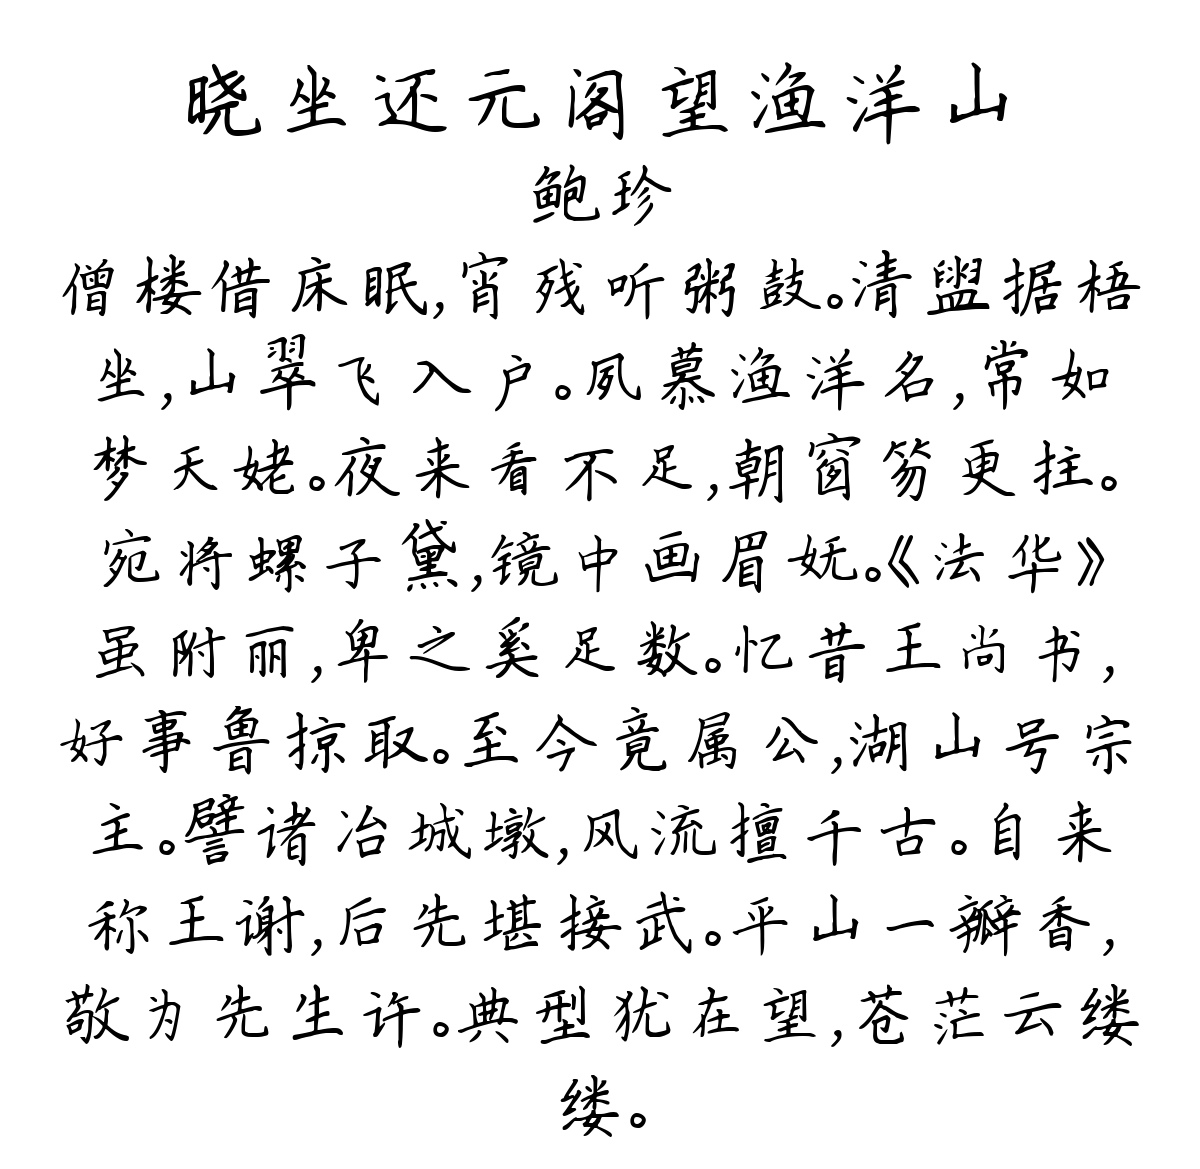 晓坐还元阁望渔洋山
鲍珍
僧楼借床眠,宵残听粥鼓。清盥据梧
坐,山翠飞入户。夙慕渔洋名,常如
梦天姥。夜来看不足,朝窗笏更拄。
宛将螺子黛,镜中画眉妩。《法华》
虽附丽,卑之奚足数。忆昔王尚书,
好事鲁掠取。至今竟属公,湖山号宗
主。譬诸冶城墩,风流擅千古。自来
称王谢,后先堪接武。平山一瓣香,
敬为先生许。典型犹在望,苍茫云缕
缕。